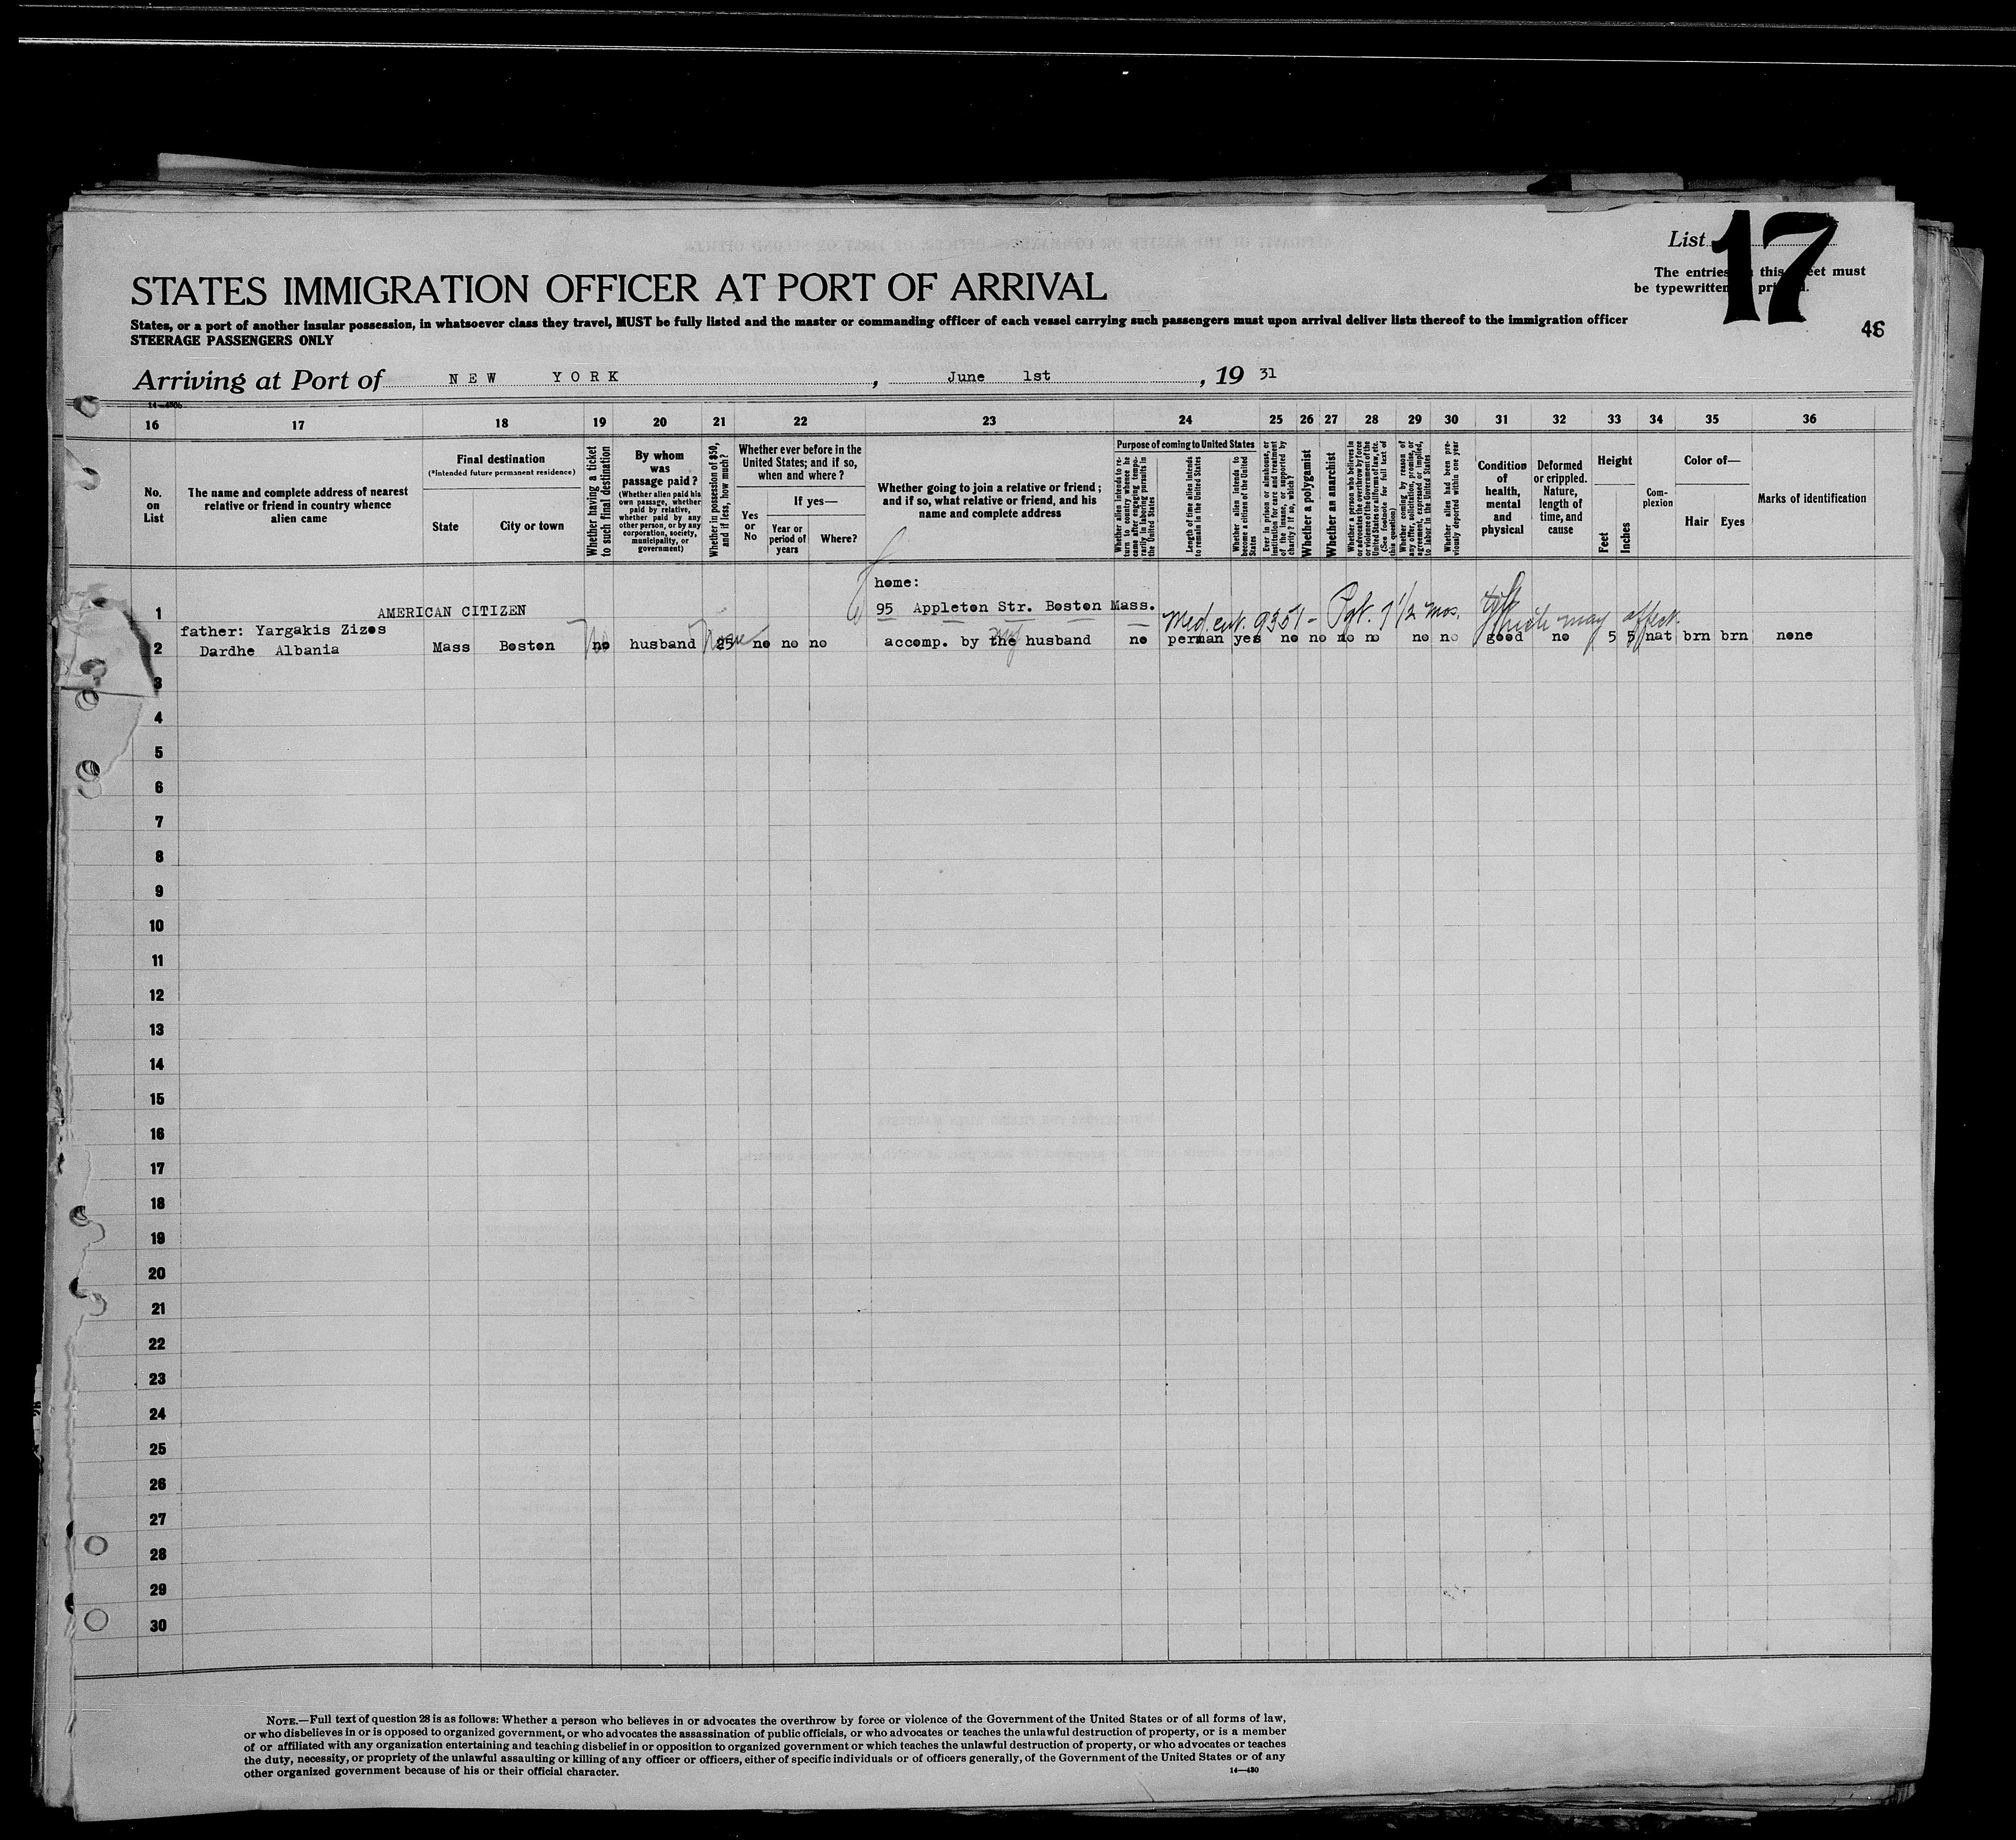 List 17
The entries this eet must
be typewritten pri d.
46
STATES IMMIGRATION OFFICER AT PORT OF ARRIVAL
States, or a port of another insular possession, in whatsoever class they travel, MUST be fully listed and the master or commanding officer of each vessel carrying such passengers must upon arrival deliver lists thereof to the immigration officer
STEERAGE PASSENGERS ONLY
Arriving at Port of NEW YORK, June 1st, 19 31
14—480b
16 17 18 19 20 21 22 23 24 25 26 27 28 29 30 31 32 33 34 35 36
No. on List
The name and complete address of nearest relative or friend in country whence alien came
Final destination
(*intended future permanent residence)
State
City or town
Whether having a ticket to such final destination
By whom was passage paid?
(Whether alien paid his own passage, whether paid by relative, whether paid by any other person, or by any corporation, society, municipality, or government)
Whether in possession of $50, and if less, how much?
Whether ever before in the United States; and if so, when and where?
Yes or No
If yes—
Year or period of years
Where?
Whether going to join a relative or friend; and if so, what relative or friend, and his name and complete address
Purpose of coming to United States
Whether alien intends to return to country whence he came after engaging temporarily in laboring pursuits in the United States
Length of time alien intends to remain in the United States
Whether alien intends to become a citizen of the United States
Ever in prison or almshouse, or institution for care and treatment of the insane, or supported by charity? If so, which?
Whether a polygamist
Whether an anarchist
Whether a person who believes in or advocates the overthrow by force or violence of the Government of the United States or all forms of law, etc. (See footnote for full text of this question)
Whether coming by reason of any offer, solicitation, promise, or agreement, expressed or implied, to labor in the United States
Whether alien had been previously deported within one year
Condition of health, mental and physical
Deformed or crippled. Nature, length of time, and cause
Height
Feet
Inches
Complexion
Color of—
Hair
Eyes
Marks of identification
home:
1 AMERICAN CITIZEN 95 Appleton Str. Boston Mass.
Med. cert. 9351 - Pgt. 7 1/2 mos. which may affect
father: Yargakis Zizos
2 Dardhe Albania Mass Boston no No husband 25 None no no no accomp. by the husband no perman yes no no no no no no good no 5 5 nat brn brn none
3
4
5
6
7
8
9
10
11
12
13
14
15
16
17
18
19
20
21
22
23
24
25
26
27
28
29
30
NOTE.—Full text of question 28 is as follows: Whether a person who believes in or advocates the overthrow by force or violence of the Government of the United States or of all forms of law,
or who disbelieves in or is opposed to organized government, or who advocates the assassination of public officials, or who advocates or teaches the unlawful destruction of property, or is a member
of or affiliated with any organization entertaining and teaching disbelief in or opposition to organized government or which teaches the unlawful destruction of property, or who advocates or teaches
the duty, necessity, or propriety of the unlawful assaulting or killing of any officer or officers, either of specific individuals or of officers generally, of the Government of the United States or of any
other organized government because of his or their official character.
14—480